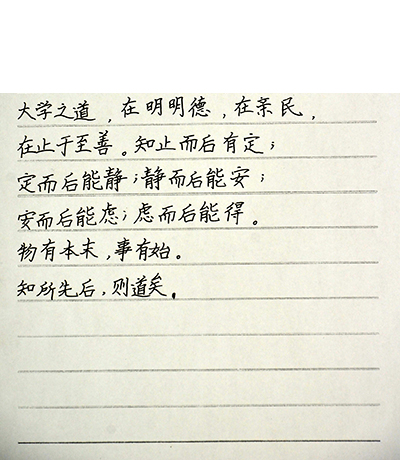 大学之道，在明明德，在亲民，
在止于至善。知止而后有定；
定而后能静；静而后能安；
安而后能虑；虑而后能得。
物有本末，事有始。
知所先后，则道矣.